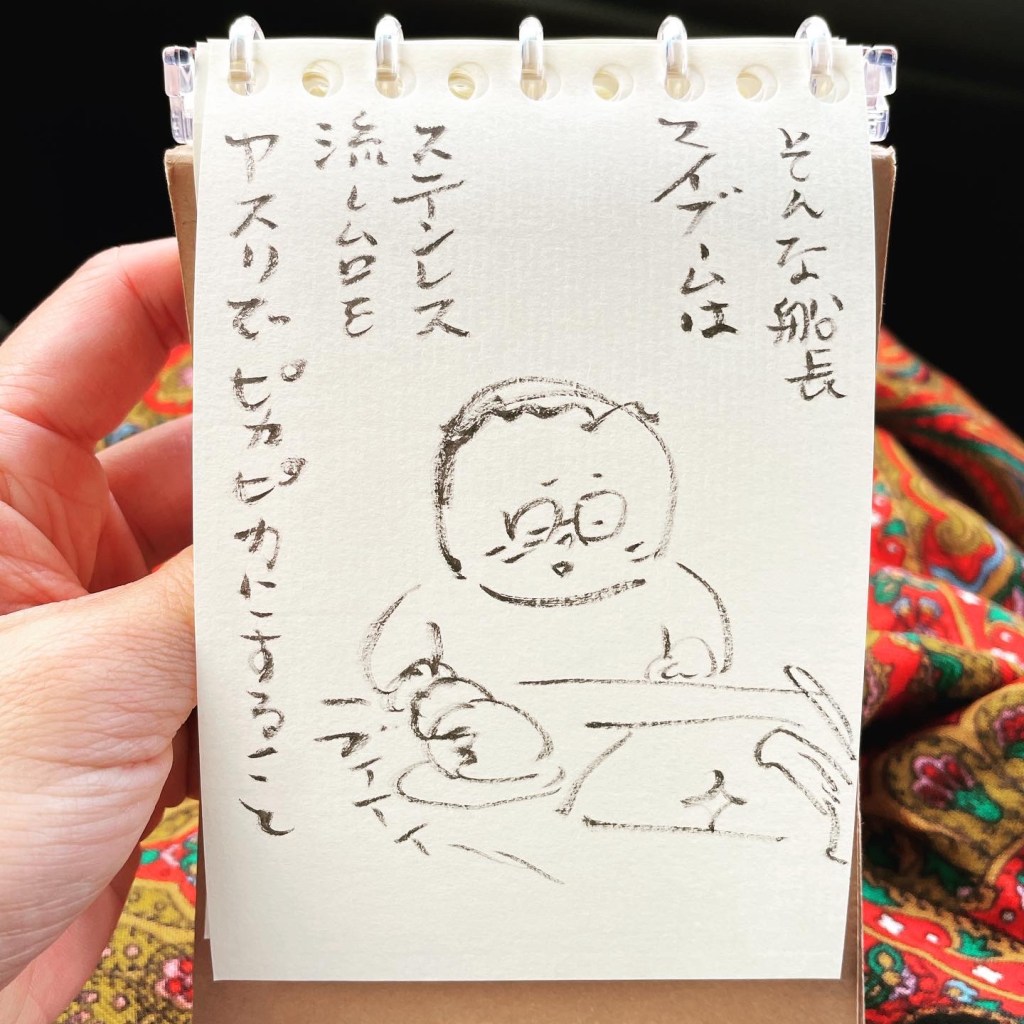 そんな船長
マイブームは
ステンレス
流し台を
ヤスリでピカピカにすること
ブイーン